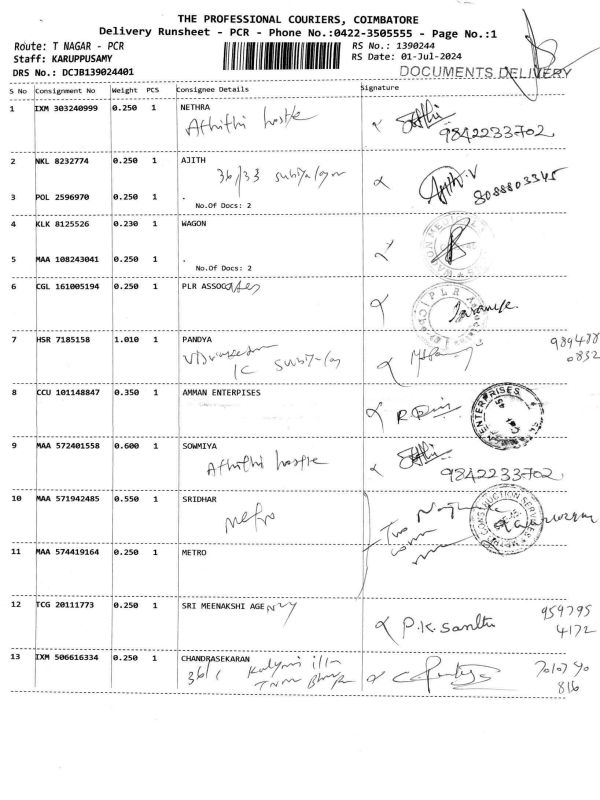 THE PROFESSIONAL COURIERS, COIMBATORE
Delivery Runsheet - PCR - Phone No.:0422-3505555 - Page No.:1
Route: T NAGAR - PCR
RS No.: 1390244
Staff: KARUPPUSAMY
RS Date: 01-Jul-2024
DRS No.: DCJB139024401
DOCUMENTS DELIVERY
S No Consignment No Weight PCS Consignee Details Signature
1 IXM 303240999 0.250 1 NETHRA
Athithi hostle
9842233702
2 NKL 8232774 0.250 1 AJITH
36/33
8088803345
3 POL 2596970 0.250 1 .
No.Of Docs: 2
4 KLK 8125526 0.230 1 WAGON
5 MAA 108243041 0.250 1 .
No.Of Docs: 2
6 CGL 161005194 0.250 1 PLR ASSOCATES
7 HSR 7185158 1.010 1 PANDYA
989488
0832
8 CCU 101148847 0.350 1 AMMAN ENTERPISES
ENTERPRISES
9 MAA 572401558 0.600 1 SOWMIYA
Athithi hostle
9842233702
10 MAA 571942485 0.550 1 SRIDHAR
metro
CONSTRUCTION SERVICES
11 MAA 574419164 0.250 1 METRO
12 TCG 20111773 0.250 1 SRI MEENAKSHI AGENZY
P.K. Santhi
959795
4172
13 IXM 506616334 0.250 1 CHANDRASEKARAN
816